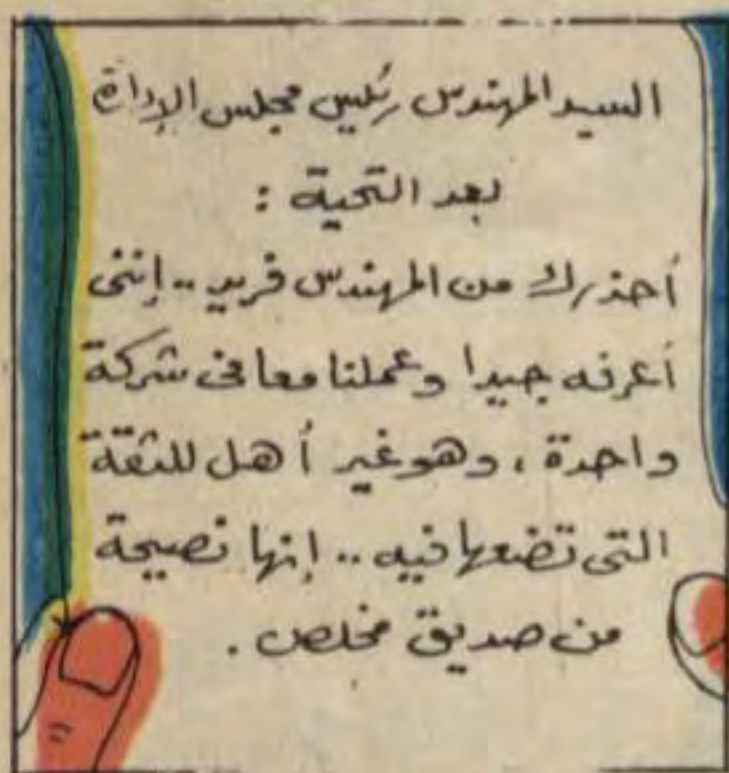 السيد المهندس رئيس مجلس الإدارة
بعد التحية :
أحذرك من المهندس فريد .. إننى
أعرفه جيدا وعملنا معا فى شركة
واحدة ، وهو غير أهل للثقة
التى تضعها فيه .. إنها نصيحة
من صديق مخلص .